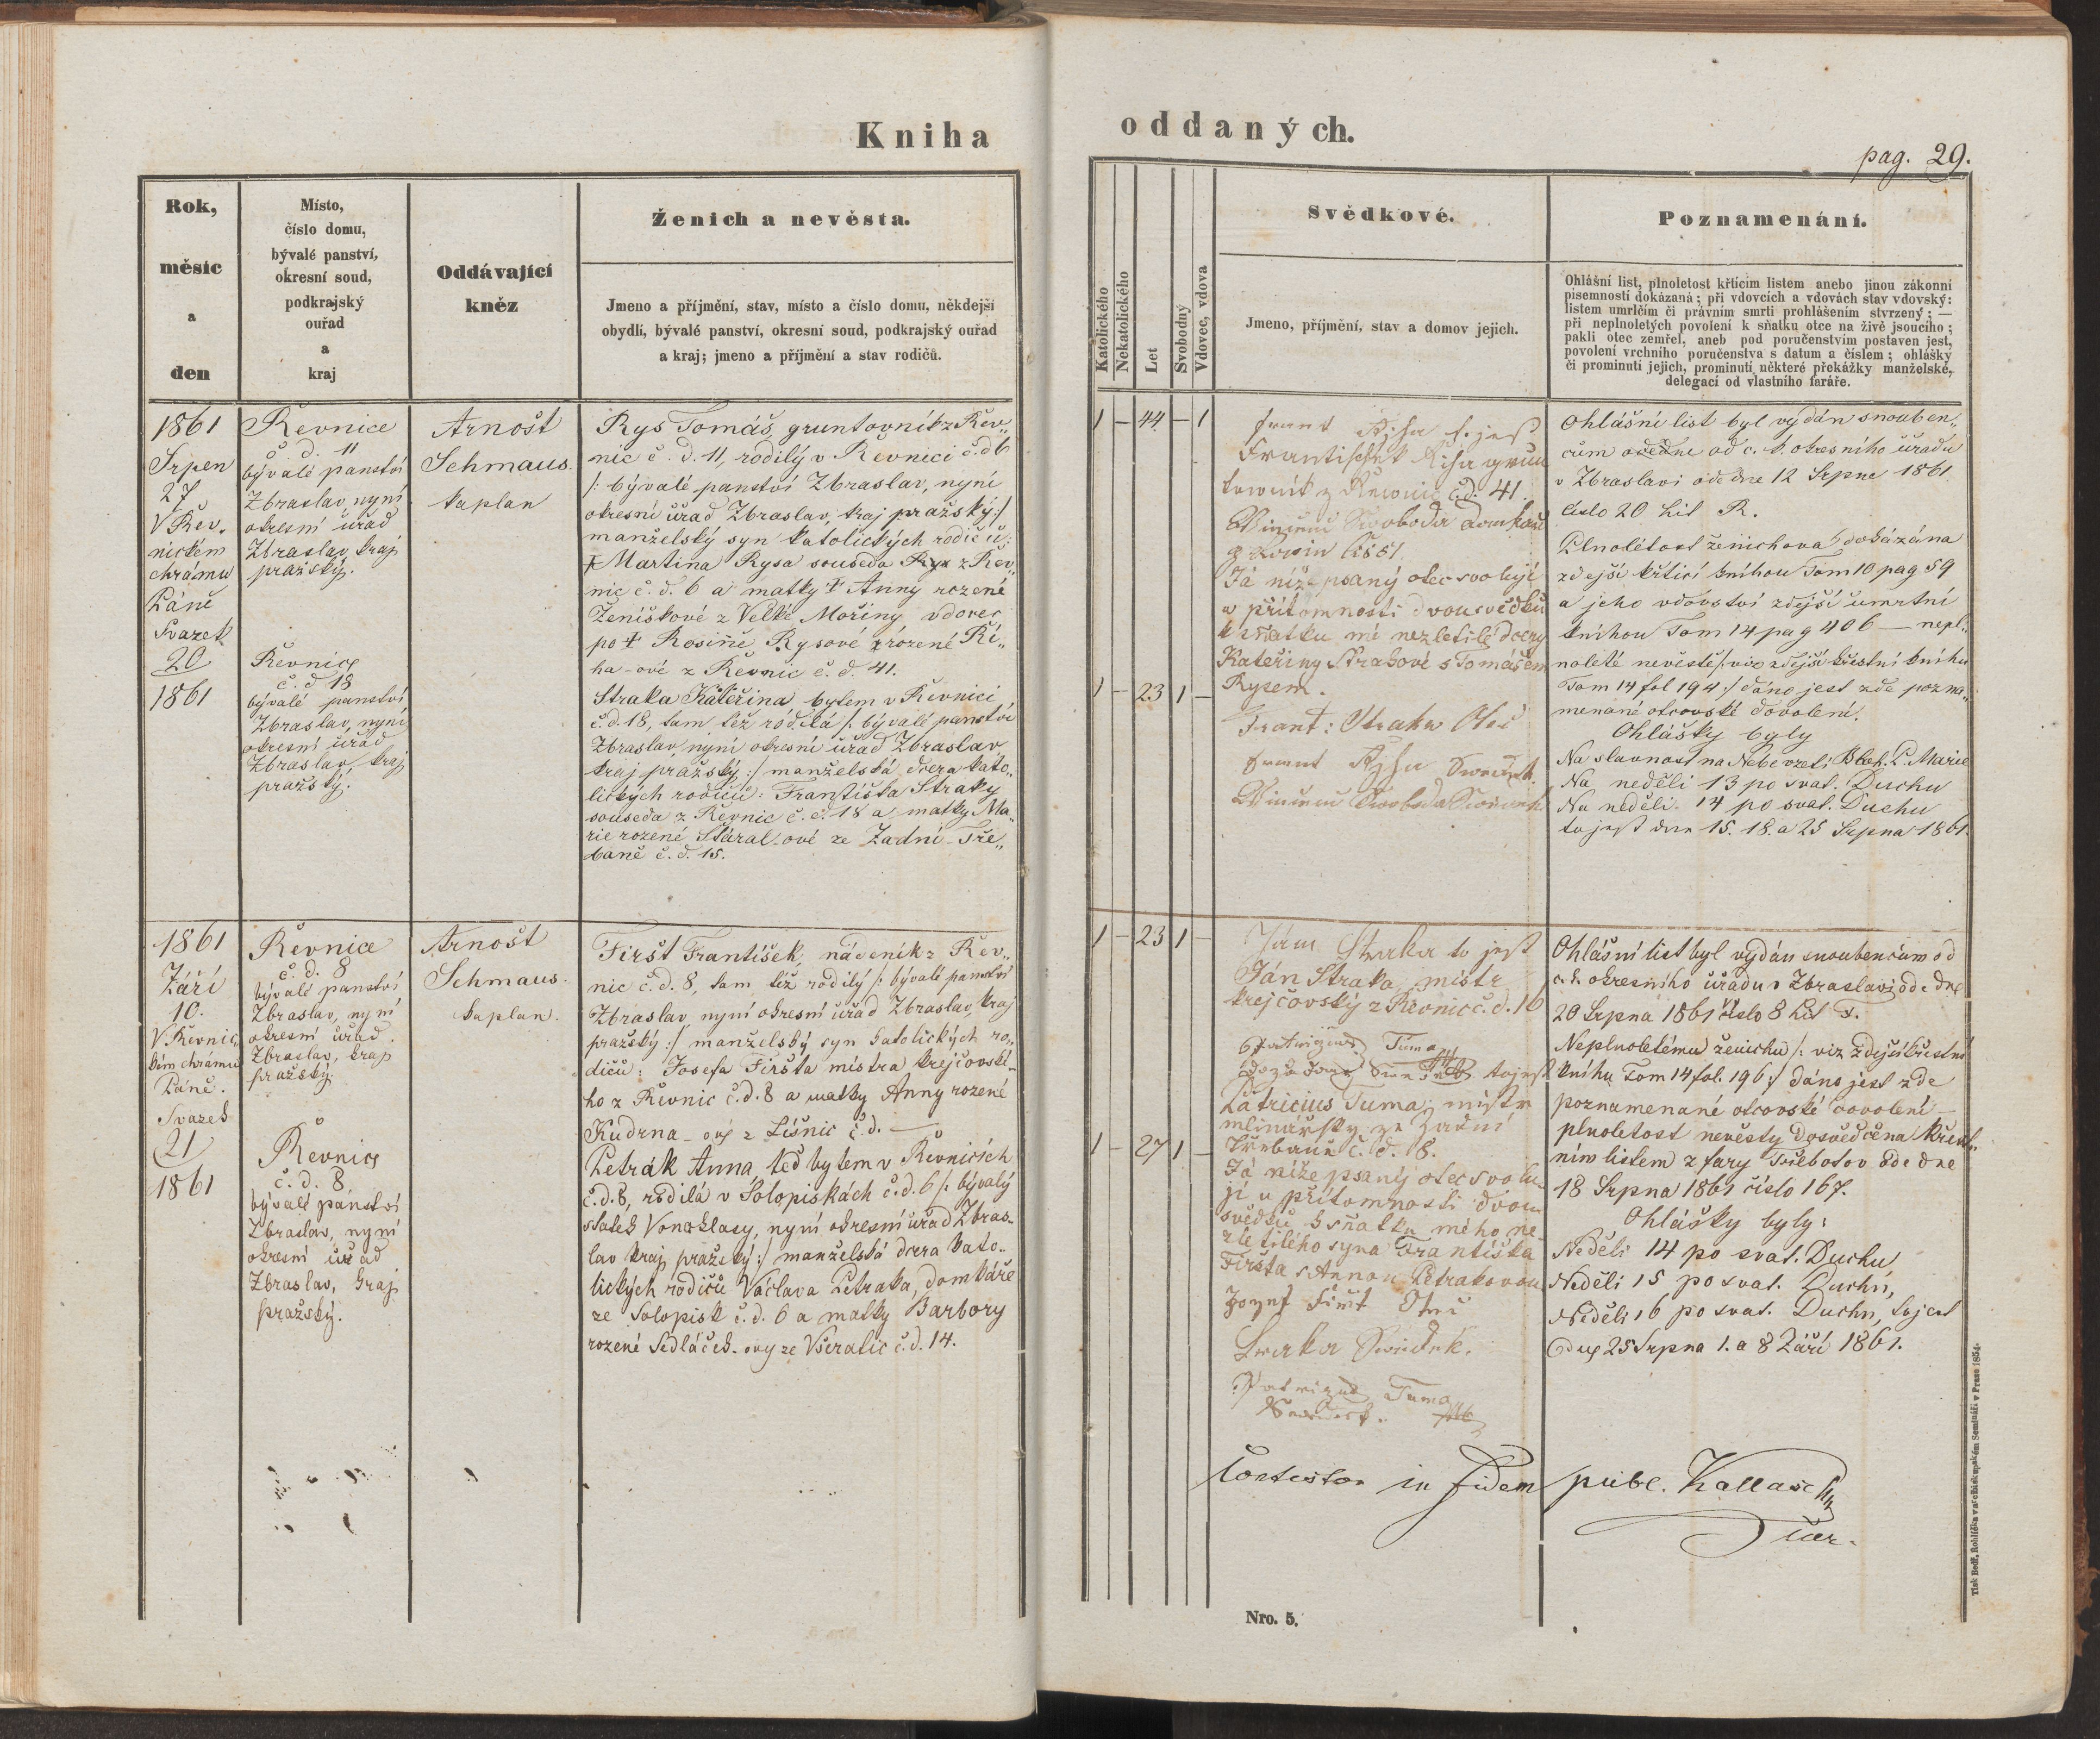 Kniha
oddaných.
pag. 29.
Rok,
měsíc
a
den
Místo,
číslo domu,
bývalé panství,
okresní soud,
podkrajský
ouřad
a
kraj
Oddávající
kněz
Ženich a nevěsta.
Jmeno a příjmění, stav, místo a číslo domu, někdejší
obydlí, bývalé panství, okresní soud, podkrajský ouřad
a kraj; jmeno a příjmění a stav rodičů.
Katolického
Nekatolického
Let
Svobodný
Vdovec, vdova
Svědkové.
Jmeno, příjmění, stav a domov jejich.
Poznamenání.
Ohlášní list, plnoletost křtícím listem anebo jinou zákonní
písemností dokázaná; při vdovcích a vdovách stav vdovský:
listem umrlčím či právním smrti prohlášením stvrzený; —
při neplnoletých povolení k sňatku otce na živě jsoucího;
pakli otec zemřel, aneb pod poručenstvím postaven jest,
povolení vrchního poručenstva s datum a číslem; ohlášky
či prominutí jejich, prominutí některé překážky manželské,
delegací od vlastního faráře.
1861
Srpen
27
V Řev.
nickém
chrámu
Páně
Svazek
20
1861
Řevnice
č. d. 11
bývalé panství
Zbraslav, nyní
okresní úřad
Zbraslav, kraj
pražský.
Řevnice
č. d 18
bývalé panství
Zbraslav, nyní
okresní úřad
Zbraslav, kraj
pražský.
Arnošt
Schmaus.
kaplan
Rys Tomáš gruntovník z Řev„
nic č. d. 11, rodilý v Řevnici č. d 6
/: bývalé panství Zbraslav, nyní
okresní úřad Zbraslav, kraj pražský :/
manželský syn katolických rodičů:
† Martina Rysa souseda z Řev„
nic č. d. 6 a matky † Anny rozené
Ženíškové z Velké Mořiny vdovec
po † Rosině Rysové rozené Ří„
ha-ové z Řevnic č. d. 41.
Straka Kateřina bytem v Řevnici
č. d. 18, tam též rodilá /: bývalé panství
Zbraslav, nyní okresní úřad Zbraslav
kraj pražský :/ manželská dcera kato„
lických rodičů: Františka Straky
souseda z Řevnic č. d. 18 a matky Ma„
rie rozené Stáral-ové ze Zadní Tře„
baně č. d. 15.
1 — 44 — 1
1 — 23 1 —
Frant Říha t. jest
Frantischek Říha grun
towník z Řewnic č. d. 41.
Swoboda domkař
Já níže psaný otec svoluji
u přítomnosti dvou svědků
k sňatku mé nezletilé dcery
Kateřiny Strakové s Tomášem
Rysem.
Frant: Straka Otec
Frant Říha Swědek
Swoboda Swědek
Ohlášní list byl vydán snouben„
cům od c. k. okresního úřadu
v Zbraslavi ode dne 12 Srpna 1861
číslo 20 hit R.
Plnolétost ženichova dokázána
zdejší křticí knihou Tom 10 pag 59
a jeho vdovství zdejší úmrtní
knihou Tom 14 pag 406 — nepl„
noleté nevěstě /: viz zdejší křestní knihu
Tom 14 fol 194 :/ dáno jest zde pozna„
menané otcovské dovolení.
Ohlášky byly
Na slavnost na Nebe vzetí Blah. P. Marie
Na neděli 13 po svat. Duchu
Na neděli 14 po svat. Duchu
to jest dne 15. 18. a 25 Srpna 1861.
1861
Září
10.
V Řevnic„
kém chrámu
Páně.
Svazek
21
1861
Řevnice
č. d. 8
bývalé panství
Zbraslav, nyní
okresní úřad
Zbraslav, kraj
pražský.
Řevnice
č. d. 8
bývalé panství
Zbraslav, nyní
okresní úřad
Zbraslav, kraj
pražský.
Arnošt
Schmaus.
kaplan.
Firšt František, nádeník z Řev„
nic č. d. 8, tam též rodilý /: bývalé panství
Zbraslav, nyní okresní úřad Zbraslav, kraj
pražský :/ manželský syn katolických ro„
dičů: Josefa Firšta mistra krejčovské-
ho z Řevnic č. d. 8 a matky Anny rozené
Kudrna-ové z Líšnic č. d. —
Petrák Anna, teď bytem v Řevnicích
č. d. 8, rodilá v Solopiskách č. d. 6 /: bývalý
statek Vonoklasy, nyní okresní úřad Zbras-
lav kraj pražský :/ manželská dcera kato„
lických rodičů Václava Petraka, domkáře
ze Solopisk č. d. 6 a matky Barbory
rozené Sedláček-ovy ze Všeradic č. d. 14.
1 — 23 1 —
1 — 27 1 —
Jám Straka to jest
Ján Straka mistr
krejčovský z Řevnic č. d. 16
Tuma
to jest
Patricius Tuma, mistr
mlinářsky ze Zadní
Třebaně č. d. 8.
Já níže psaný otec svolu„
ji u přítomnosti dvou
svědků k sňatku mého ne-
zletilého syna Františka
Firšta s Annou Petrakovou
Jozef Firšt Otec
Straka Swědek.
Tuma
Swědek.
Ohlášní list byl vydán snoubencům od
c. k. okresního úřadu v Zbraslavi ode dne
20 Srpna 1861 číslo 8 hit F.
Neplnoletému ženichu /: viz zdejší křestní
knihu Tom 14 fol. 196 :/ dáno jest zde
poznamenané otcovské dovolení —
plnoletost nevěsty dosvědčena křest„
ním listem z fary Třebotov ode dne
18 Srpna 1861 číslo 167.
Ohlášky byly:
Neděli 14 po svat. Duchu
Neděli 15 po svat. Duchu,
Neděli 16 po svat. Duchu, to jest
dne 25 Srpna 1. a 8 Září 1861.
Contestor in fidem publ. Kallasch
Nro. 5.
Tisk Bedř. Rohlíčka v arcibiskupském Semináři v Praze 1854.